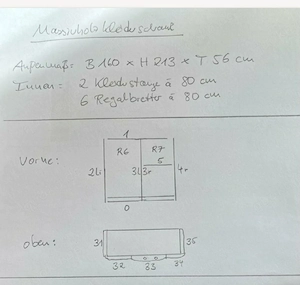 Massivholzkleiderschrank
Außenmaß: B 160 × H 213 × T 56 cm
Innen: 2 Kleiderstange à 80 cm
6 Regalbretter à 80 cm
1
Vorne: R6 R7
5
2li 3li 3r 4r
0
oben: 31 35
32 33 34